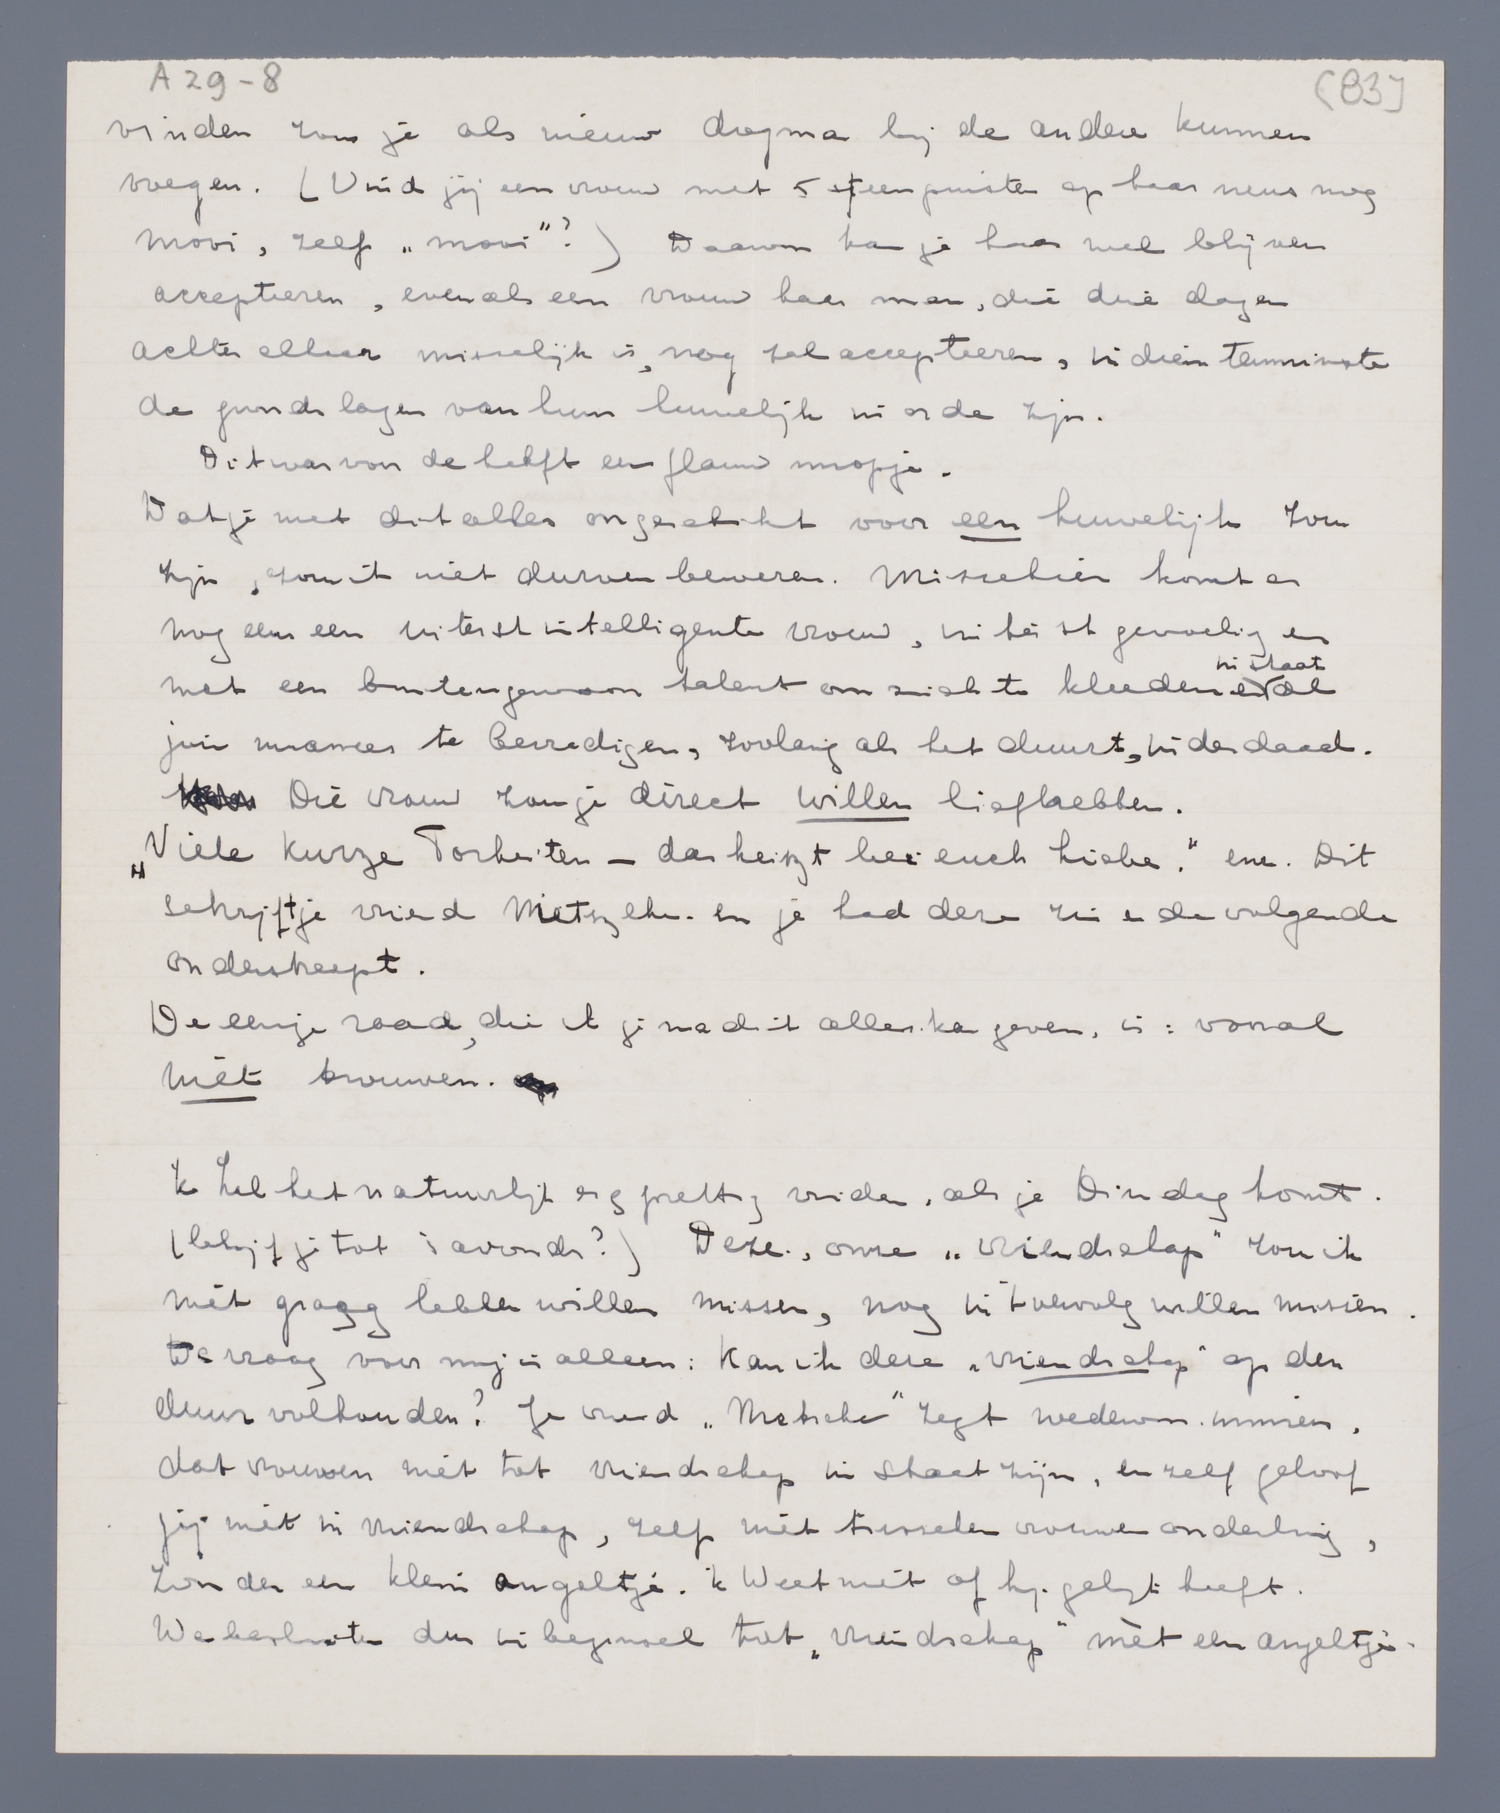 A 29-8
(83]
vinden zou je als nieuw dogma bij de andere kunnen
voegen. (Vind jij een vrouw met 5 steenpuisten op haar neus nog
mooi, zelf „mooi"?) Daarom kan je haar wel blijven
accepteeren, evenals een vrouw haar man, die drie dagen
achter elkaar misselijk is, nog zal accepteeren, indien tenminste
de grondslagen van hun huwelijk in orde zijn.
Dit was voor de helft een flauw mopje.
Dat je met dit alles ongeschikt voor een huwelijk zou
zijn, zou ik niet durven beweren. Misschien komt er
nog eens een uiterst intelligente vrouw, uiterst gevoelig en
met een buitengewoon talent om zich te kleeden in staat al
jouw nuances te bevredigen, zoolang als het duurt, inderdaad.
Die vrouw zou je direct willen liefhebben.
„Viele kurze Torheiten — das heiszt bei euch Liebe." enz. Dit
schrijft je vriend Nietszche. en je had deze zin en de volgende
onderstreept.
De eenige raad, die ik je na dit alles kan geven, is: vooral
niét trouwen.
Ik zal het natuurlijk erg prettig vinden, als je Dinsdag komt.
(blijf je tot 's avonds?) Deze, onze „vriendschap" zou ik
niét graag hebben willen missen, nog in 't vervolg willen missen.
De vraag voor mij is alleen: kan ik deze „vriendschap" op den
duur volhouden? Je vriend „Nietsche" zegt wederom immers,
dat vrouwen niét tot vriendschap in staat zijn, en zelf geloof
jij niét in vriendschap, zelf niét tusschen vrouwen onderling,
zonder een klein angeltje. ik Weet niét of hij gelijk heeft.
We besluiten dus in beginsel tot „vriendschap" mèt een angeltje.